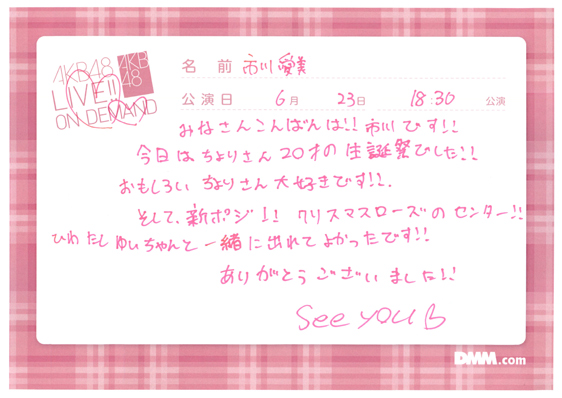 AKB48
LIVE!!
ON DEMAND
AKB
48
名 前 市川 愛美
公演日 6月 23日 18:30 公演
みなさんこんばんは!! 市川です!!
今日はちょりさん20才の生誕祭でした!!
おもしろい ちょりさん大好きです!!.
そして、新ポジ!! クリスマスローズのセンター!!
ひわたしゆいちゃんと一緒に出れてよかったです!!
ありがとうございました!!
See you
DMM.com